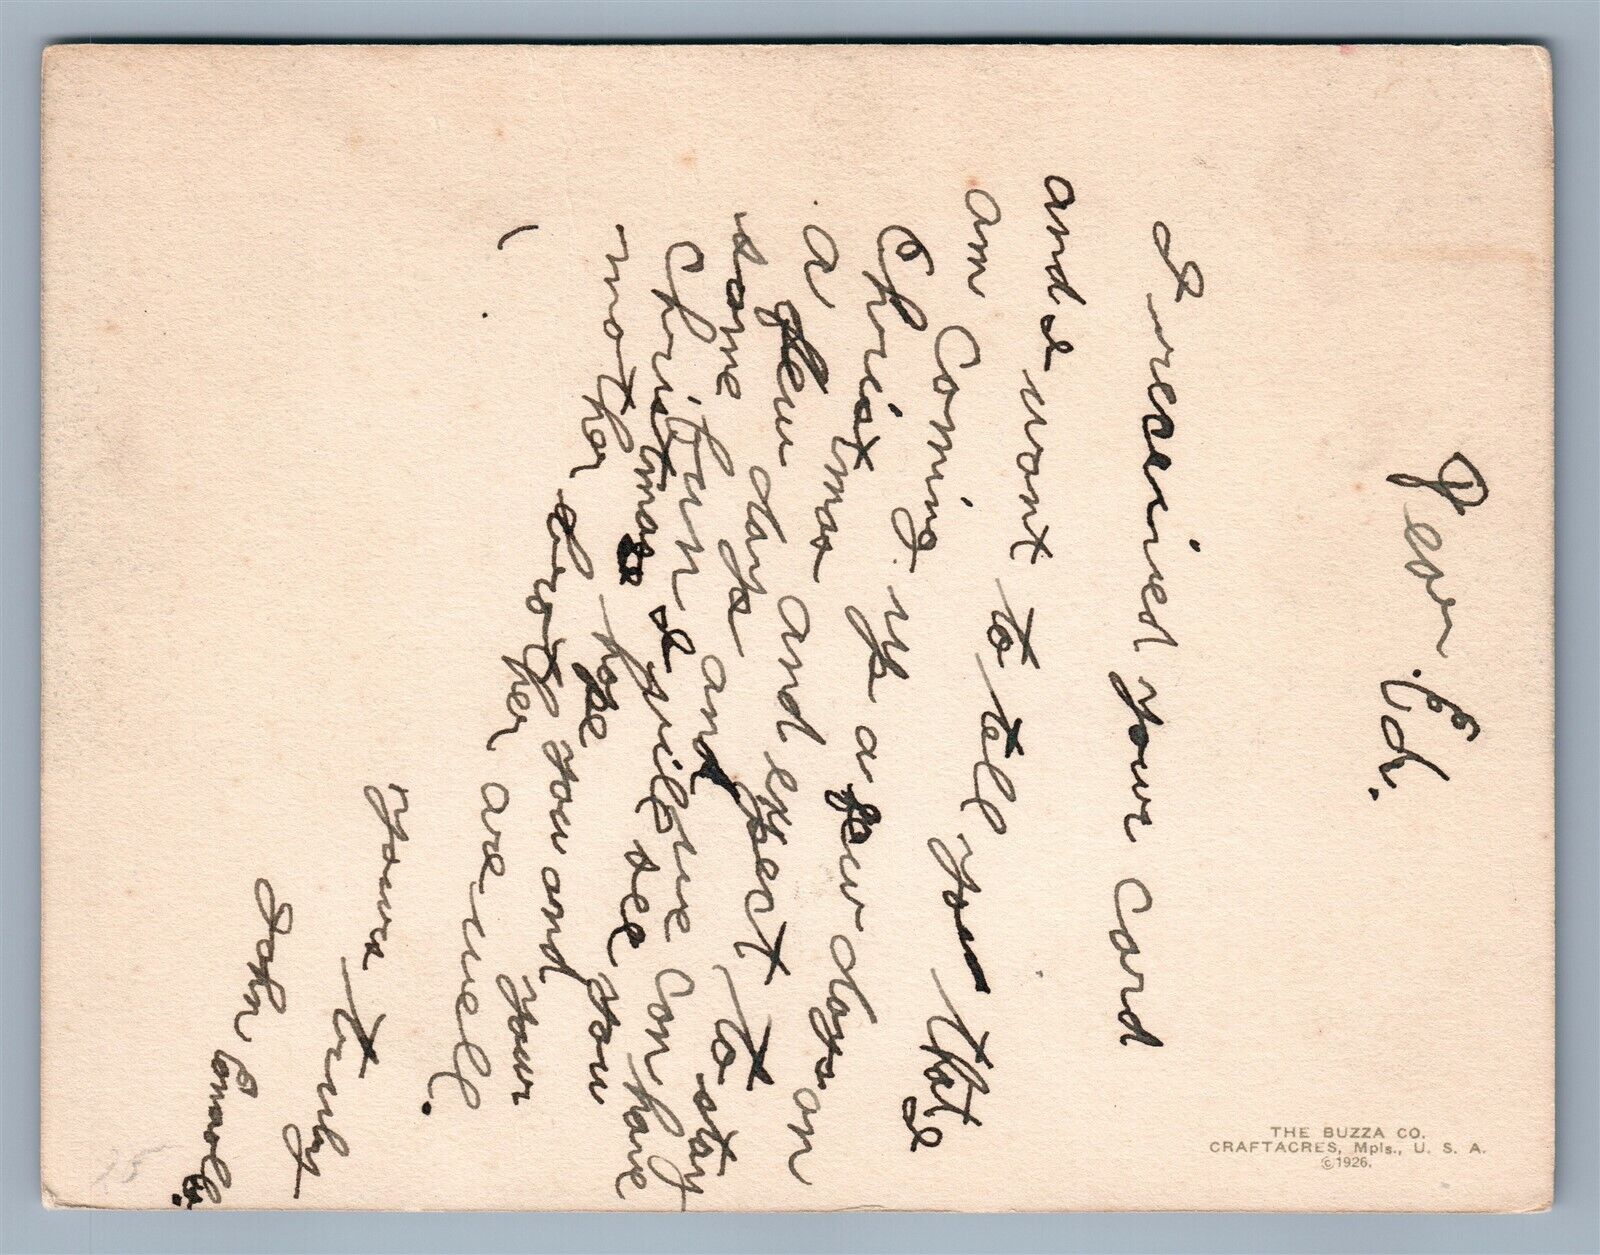 Dear Ed.
I received your card
and I want to tell you that I
am Coming up a few days on
Christmas and expect to stay
a few days and we can have
some fun I will see you
Christmas hope you and your
mother brother are well.
Yours truly
John
THE BUZZA CO.
CRAFTACRES, Mpls., U. S. A.
©1926.
25